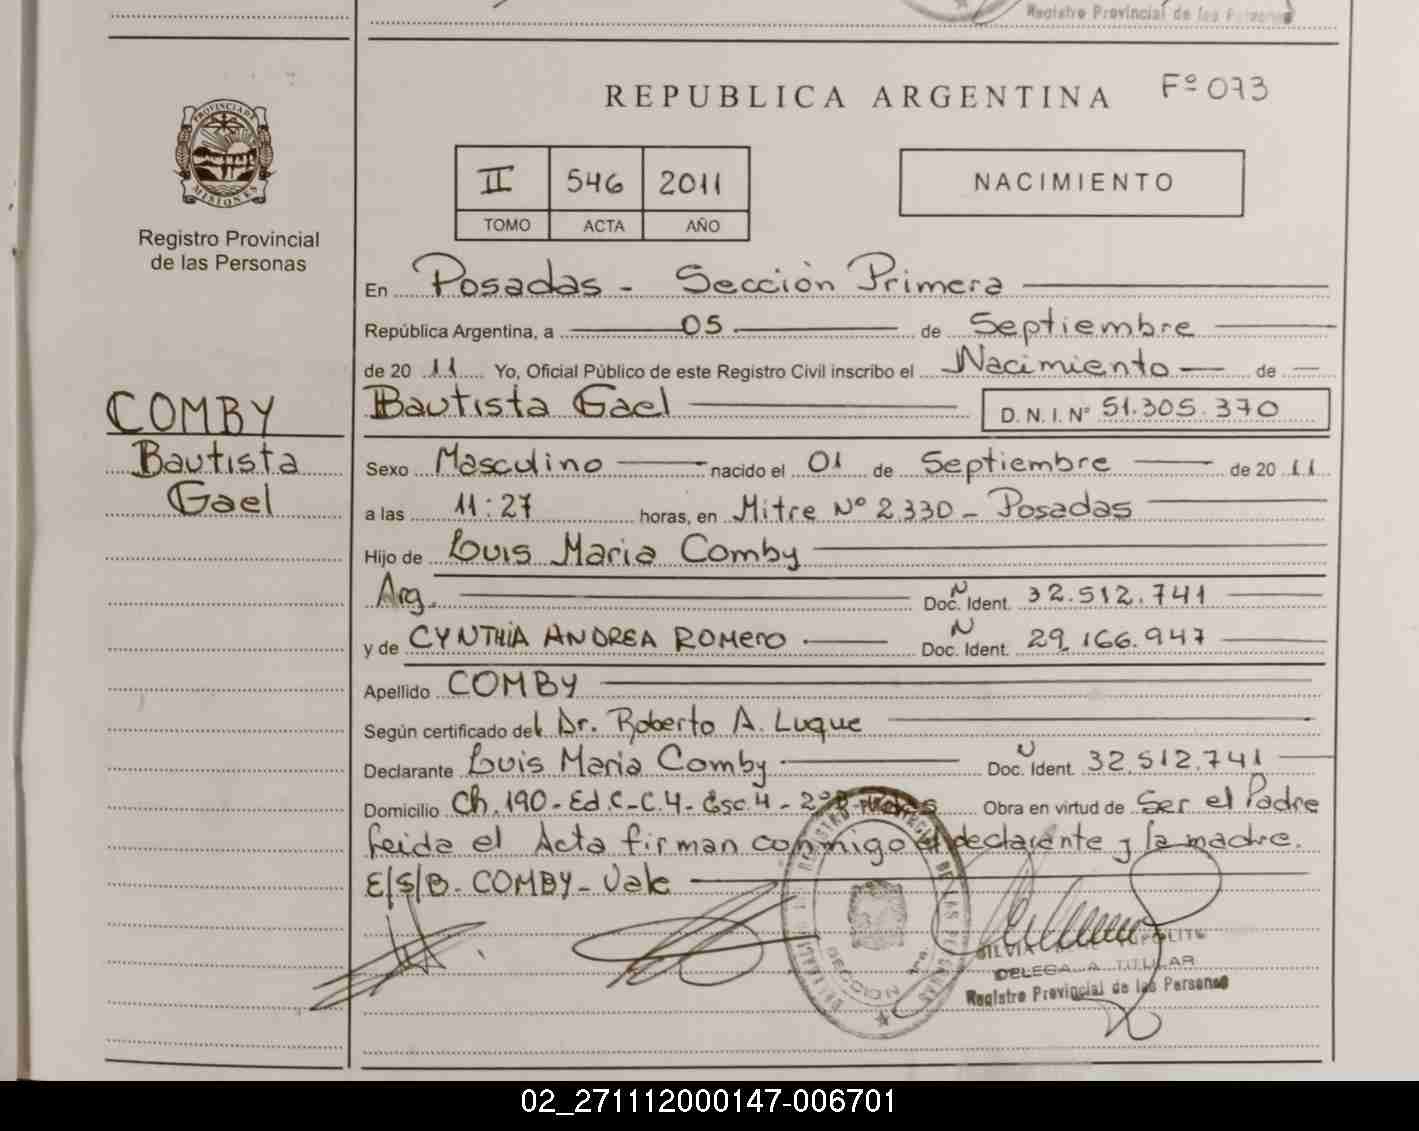 Registro Provincial de las Personas
REPUBLICA ARGENTINA
Fº 073
PROVINCIA DE
MISIONES
Registro Provincial
de las Personas
II 546 2011
TOMO ACTA AÑO
NACIMIENTO
En Posadas - Sección Primera
República Argentina, a 05 de Septiembre
de 20 11 Yo, Oficial Público de este Registro Civil inscribo el Nacimiento de
COMBY
Bautista
Gael
Bautista Gael
D. N. I. Nº 51.305.370
Sexo Masculino nacido el 01 de Septiembre de 20 11
a las 11:27 horas, en Mitre Nº 2.330 - Posadas
Hijo de Luis Maria Comby
Arg. Doc. Ident. N 32.512.741
y de CYNTHIA ANDREA ROMERO Doc. Ident. N 29.166.947
Apellido COMBY
Según certificado del Dr. Roberto A. Luque
Declarante Luis Maria Comby Doc. Ident. N 32.512.741
Domicilio Ch. 190 - Ed. C - C.4 - Esc. 4 - Obra en virtud de Ser el Padre
leida el Acta firman conmigo el declarante y la madre.
E/S/B - COMBY - Vale
SECCION
SILVIA
DELEGADA TITULAR
Registro Provincial de las Personas
02_271112000147-006701